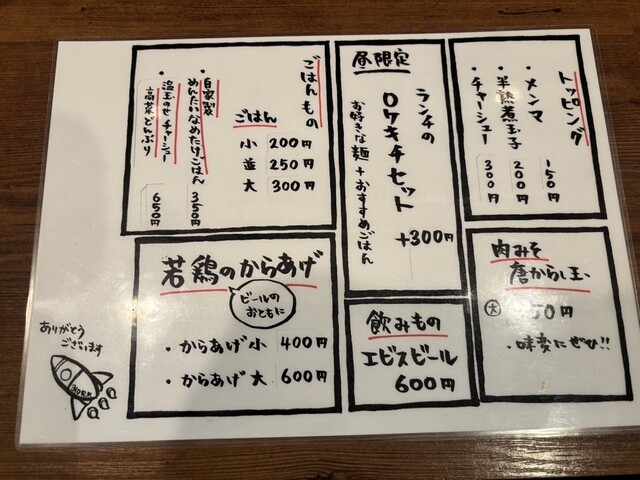 トッピング
・メンマ 150円
・半熟煮玉子 200円
・チャーシュー 300円
昼限定
ランチの
ロケキチセット
お好きな麺+おすすめごはん
+300円
ごはんもの
ごはん
小 200円
並 250円
大 300円
・自家製
めんたいなめたけごはん 350円
・温玉のせチャーシュー
高菜どんぶり 650円
肉みそ
唐からし玉
大 50円
・味変にぜひ!!
若鶏のからあげ
ビールの
おともに
・からあげ小 400円
・からあげ大 600円
飲みもの
エビスビール
600円
ありがとう
ございます